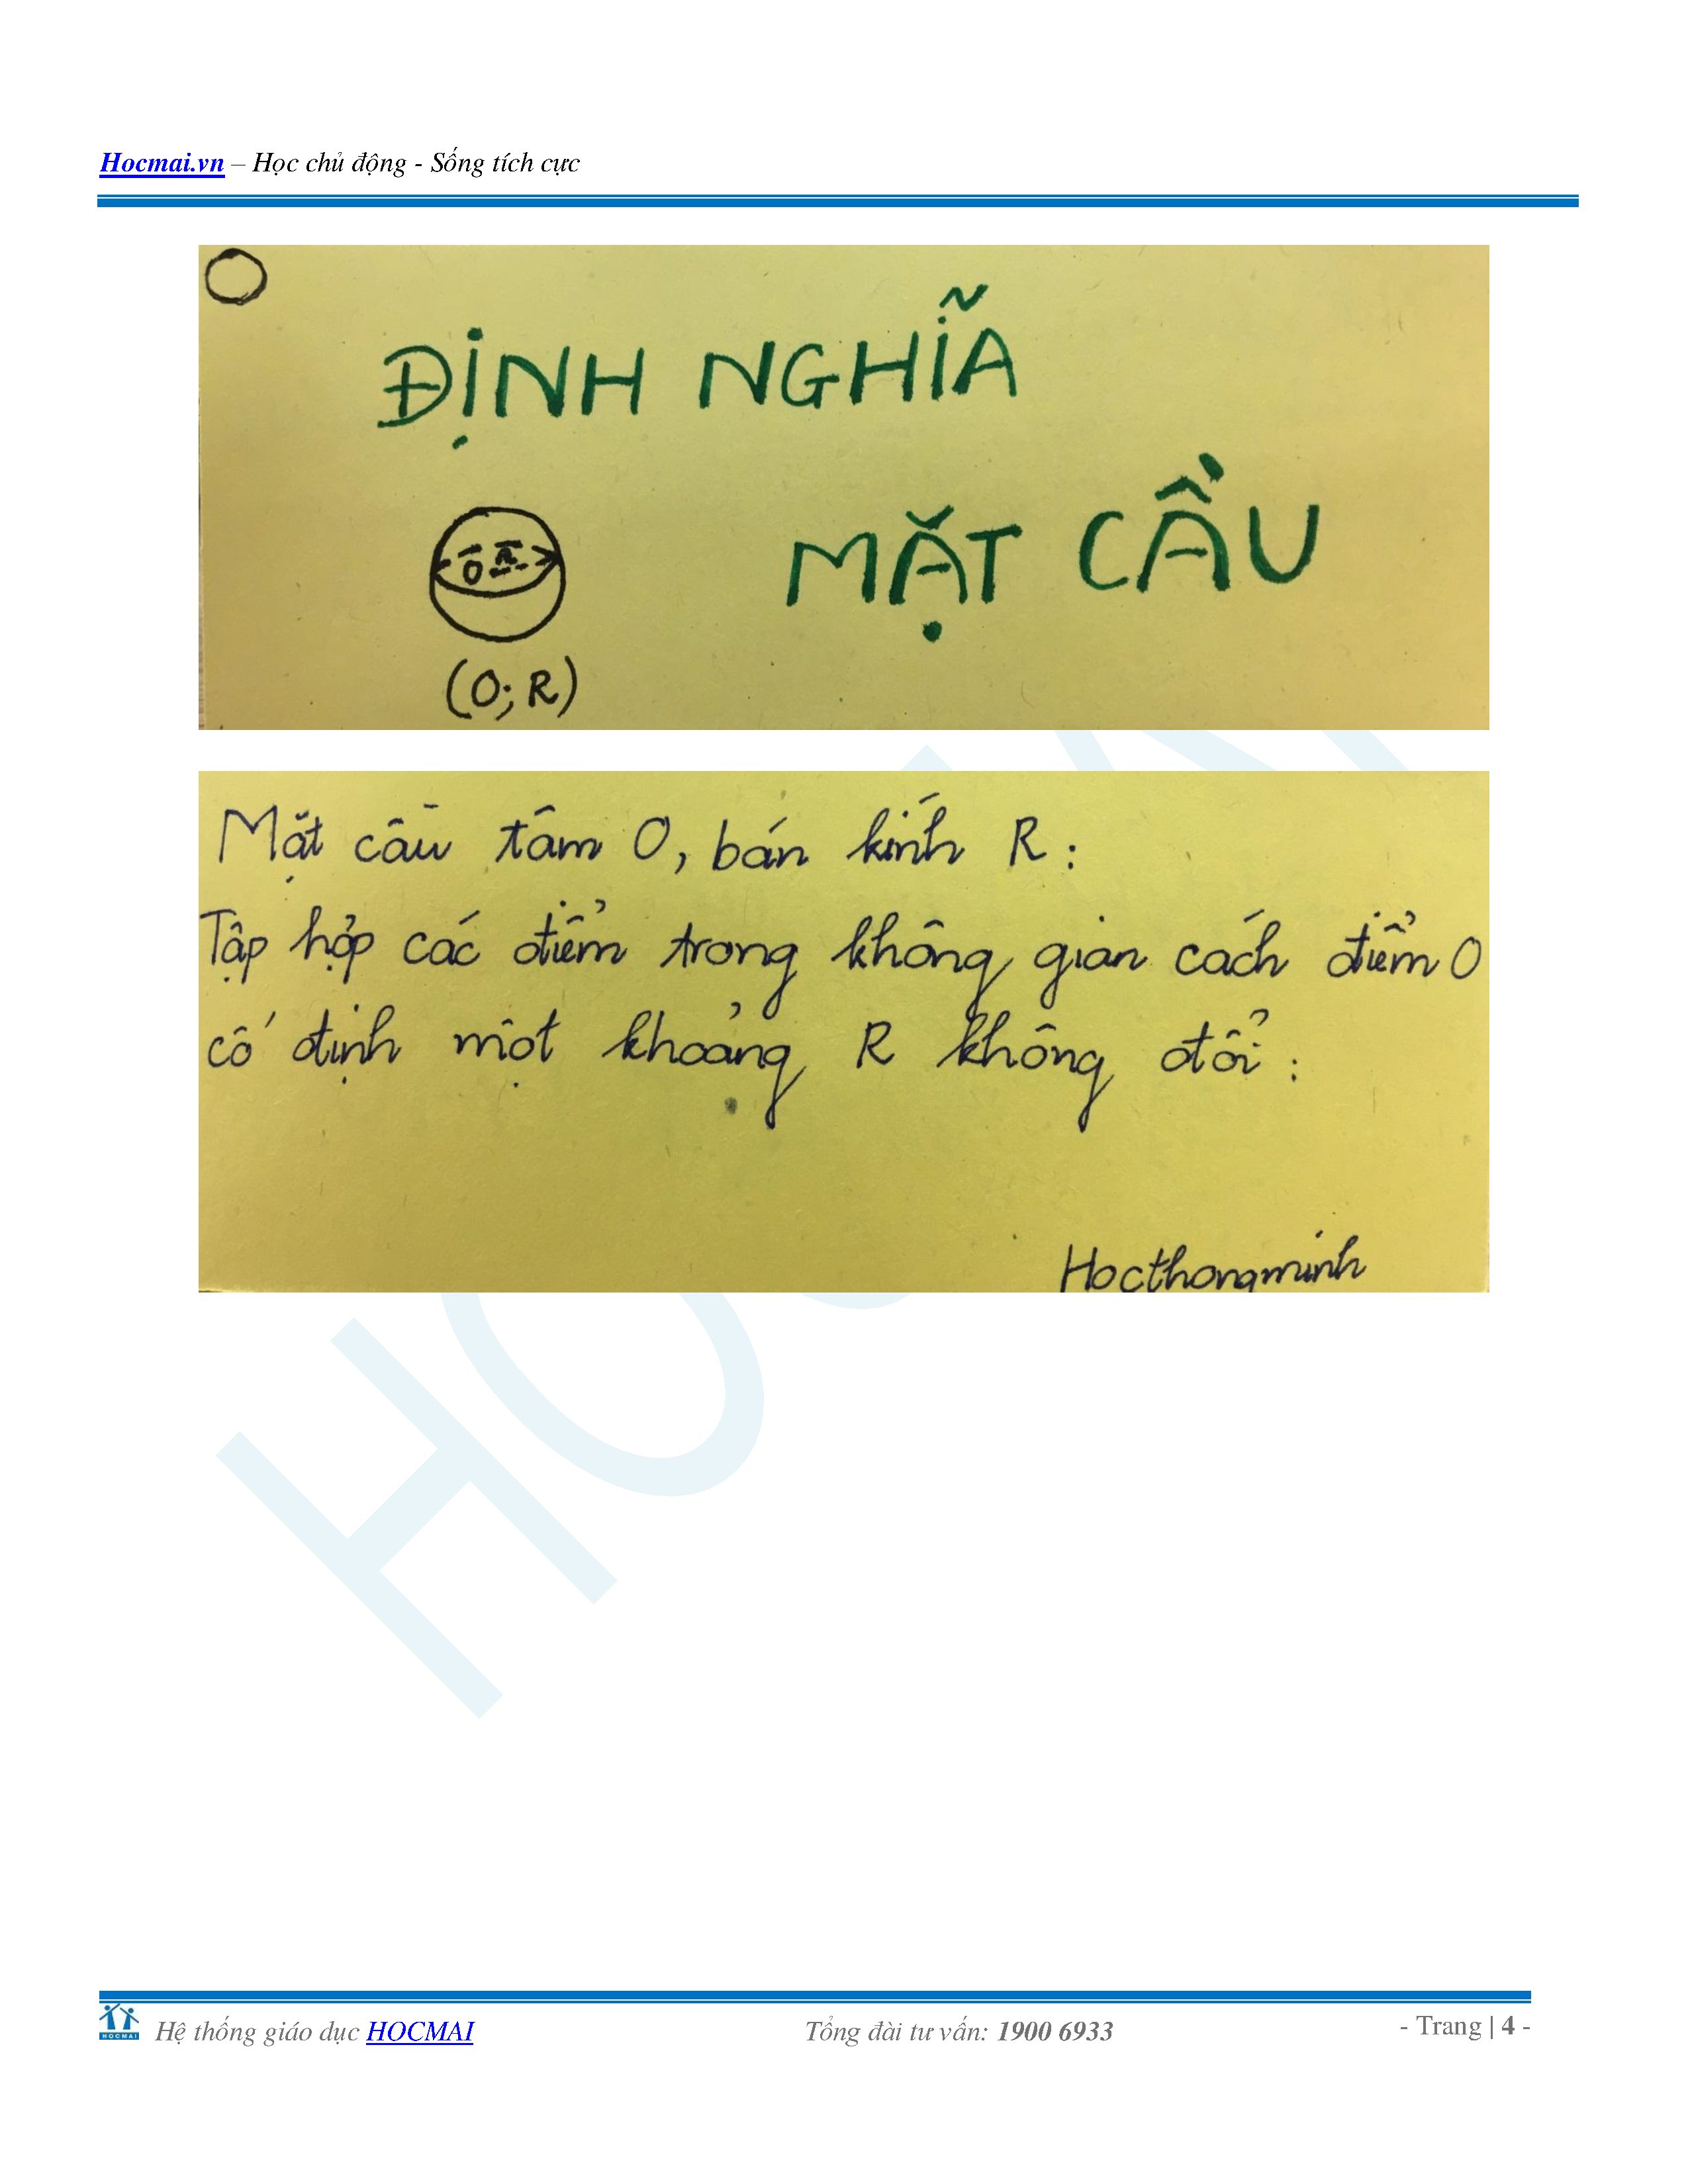 Hocmai.vn – Học chủ động - Sống tích cực
ĐỊNH NGHĨA
MẶT CẦU
O R
(O; R)
Mặt cầu tâm O, bán kính R:
Tập hợp các điểm trong không gian cách điểm O
cố định một khoảng R không đổi:
Hocthongminh
HOCMAI
Hệ thống giáo dục HOCMAI
Tổng đài tư vấn: 1900 6933
- Trang | 4 -